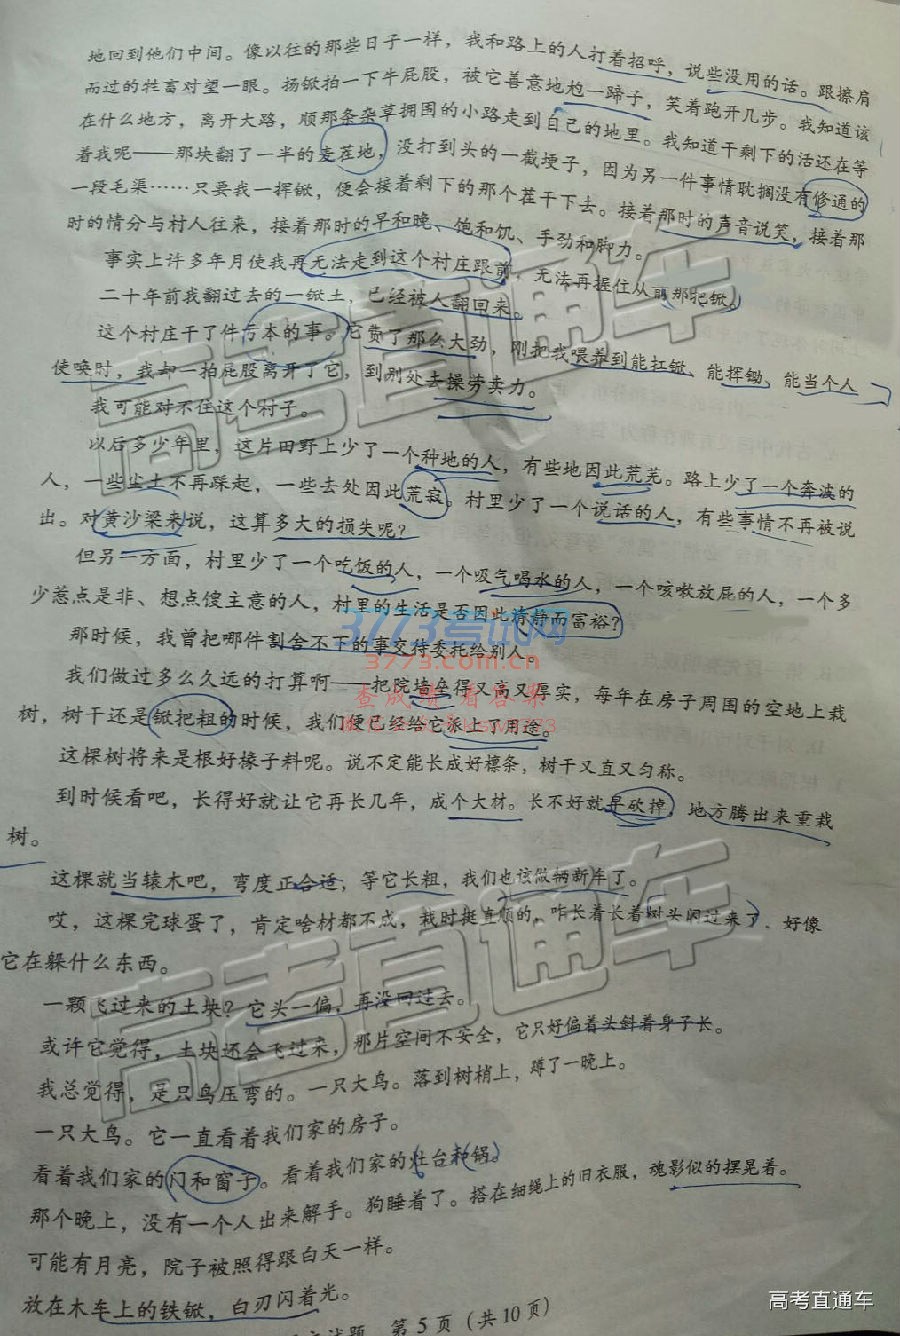 地回到他们中间。像以往的那些日子一样，我和路上的人打着招呼，说些没用的话。跟擦肩
而过的牲畜对望一眼。扬锨拍一下牛屁股，被它善意地尥一蹄子，笑着跑开几步。我知道该
在什么地方，离开大路，顺那条杂草拥围的小路走到自己的地里。我知道干剩下的活还在等
着我呢——那块翻了一半的麦茬地，没打到头的一截埂子，因为另一件事情耽搁没有修通的
一段毛渠……只要我一挥锨，便会接着剩下的那个茬干下去。接着那时的声音说笑，接着那
时的情分与村人往来，接着那时的早和晚、饱和饥、手劲和脚力。
事实上许多年月使我再无法走到这个村庄跟前，无法再握住从前那把锨。
二十年前我翻过去的一锨土，已经被人翻回来。
这个村庄干了件亏本的事。它费了那么大劲，刚把我喂养到能扛锨、能挥锄、能当个人
使唤时，我却一拍屁股离开了它，到别处去操劳卖力。
我可能对不住这个村子。
以后多少年里，这片田野上少了一个种地的人，有些地因此荒芜。路上少了一个奔波的
人，一些尘土不再踩起，一些去处因此荒寂。村里少了一个说话的人，有些事情不再被说
出。对黄沙梁来说，这算多大的损失呢？
但另一方面，村里少了一个吃饭的人，一个吸气喝水的人，一个咳嗽放屁的人，一个多
少惹点是非、想点馊主意的人，村里的生活是否因此清静而富裕？
那时候，我曾把哪件割舍不下的事交待委托给别人。
我们做过多么久远的打算啊——把院墙垒得又高又厚实，每年在房子周围的空地上栽
树，树干还是锨把粗的时候，我们便已经给它派上了用途。
这棵树将来是根好椽子料呢。说不定能长成好檩条，树干又直又匀称。
到时候看吧，长得好就让它再长几年，成个大材。长不好就早砍掉，地方腾出来重栽
树。
这棵就当辕木吧，弯度正合适，等它长粗，我们也该做辆新车了。
哎，这棵完球蛋了，肯定啥材都不成，栽时挺直顺的，咋长着长着树头闪过来了，好像
它在躲什么东西。
一颗飞过来的土块？它头一偏，再没回过去。
或许它觉得，土块还会飞过来，那片空间不安全，它只好偏着头斜着身子长。
我总觉得，是只鸟压弯的。一只大鸟。落到树梢上，蹲了一晚上。
一只大鸟。它一直看着我们家的房子。
看着我们家的门和窗子。看着我们家的灶台和锅。
那个晚上，没有一个人出来解手。狗睡着了。搭在细绳上的旧衣服，魂影似的摆晃着。
可能有月亮，院子被照得跟白天一样。
放在木车上的铁锨，白刃闪着光。
试题 第5页（共10页）
高考直通车
高考直通车
3773考试网
3773.com.cn
查成绩 看答案
高考直通车